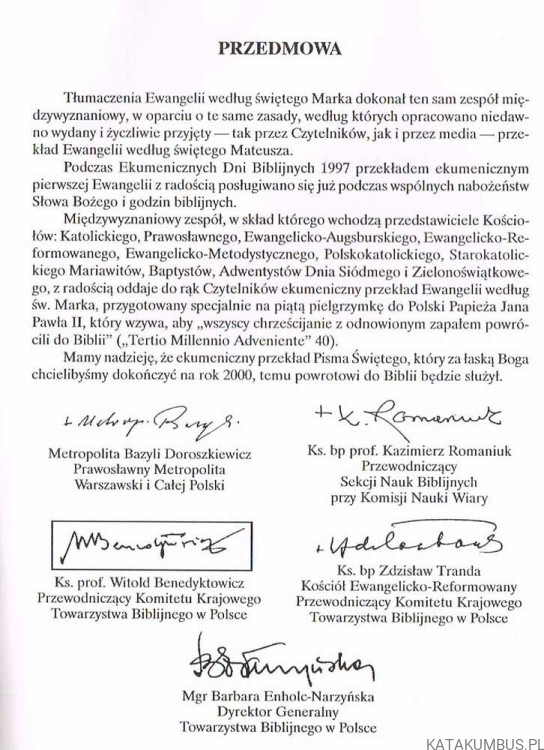 PRZEDMOWA
Tłumaczenia Ewangelii według świętego Marka dokonał ten sam zespół mię-
dzywyznaniowy, w oparciu o te same zasady, według których opracowano niedaw-
no wydany i życzliwie przyjęty — tak przez Czytelników, jak i przez media — prze-
kład Ewangelii według świętego Mateusza.
Podczas Ekumenicznych Dni Biblijnych 1997 przekładem ekumenicznym
pierwszej Ewangelii z radością posługiwano się już podczas wspólnych nabożeństw
Słowa Bożego i godzin biblijnych.
Międzywyznaniowy zespół, w skład którego wchodzą przedstawiciele Kościo-
łów: Katolickiego, Prawosławnego, Ewangelicko-Augsburskiego, Ewangelicko-Re-
formowanego, Ewangelicko-Metodystycznego, Polskokatolickiego, Starokatolic-
kiego Mariawitów, Baptystów, Adwentystów Dnia Siódmego i Zielonoświątkowe-
go, z radością oddaje do rąk Czytelników ekumeniczny przekład Ewangelii według
św. Marka, przygotowany specjalnie na piątą pielgrzymkę do Polski Papieża Jana
Pawła II, który wzywa, aby „wszyscy chrześcijanie z odnowionym zapałem powró-
cili do Biblii” („Tertio Millennio Adveniente” 40).
Mamy nadzieję, że ekumeniczny przekład Pisma Świętego, który za łaską Boga
chcielibyśmy dokończyć na rok 2000, temu powrotowi do Biblii będzie służył.
+ K. Romaniuk
Metropolita Bazyli Doroszkiewicz
Prawosławny Metropolita
Warszawski i Całej Polski
Ks. bp prof. Kazimierz Romaniuk
Przewodniczący
Sekcji Nauk Biblijnych
przy Komisji Nauki Wiary
Ks. prof. Witold Benedyktowicz
Przewodniczący Komitetu Krajowego
Towarzystwa Biblijnego w Polsce
Ks. bp Zdzisław Tranda
Kościół Ewangelicko-Reformowany
Przewodniczący Komitetu Krajowego
Towarzystwa Biblijnego w Polsce
Mgr Barbara Enholc-Narzyńska
Dyrektor Generalny
Towarzystwa Biblijnego w Polsce
KATAKUMBUS.PL